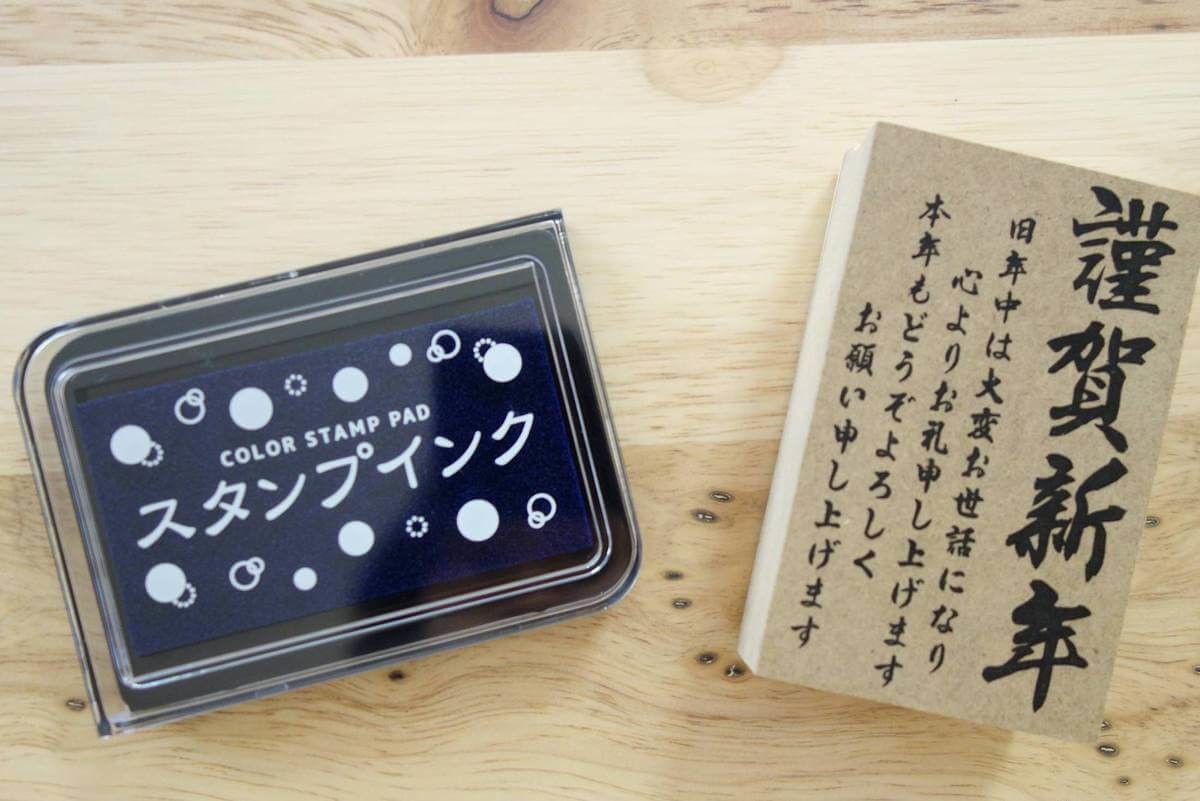 COLOR STAMP PAD
スタンプインク
謹賀新年
旧年中は大変お世話になり
心よりお礼申し上げます
本年もどうぞよろしく
お願い申し上げます